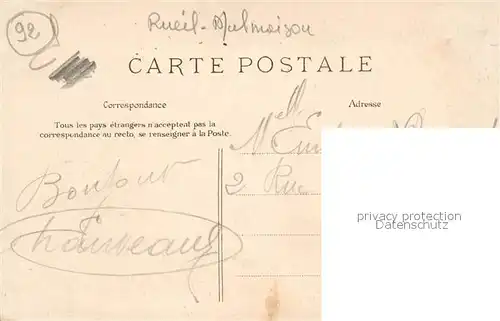 92
Rueil-Malmaison
CARTE POSTALE
Correspondance
Adresse
Tous les pays étrangers n'acceptent pas la
correspondance au recto, se renseigner à la Poste.
Mell
Bonjour
2 Rue
privacy protection
Datenschutz